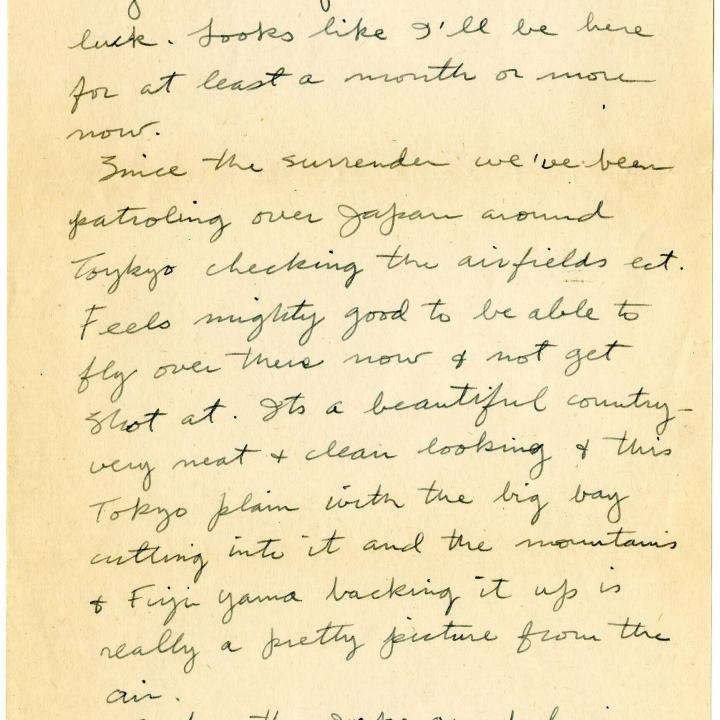 luck. Looks like I'll be here
for at least a month or more
now.
Since the surrender we've been
patroling over Japan around
Toykyo checking the airfields ect.
Feels mighty good to be able to
fly over there now & not get
shot at. Its a beautiful country-
very neat & clean looking & this
Tokyo plain with the big bay
cutting into it and the mountains
& Fuji yama backing it up is
really a pretty picture from the
air.
the